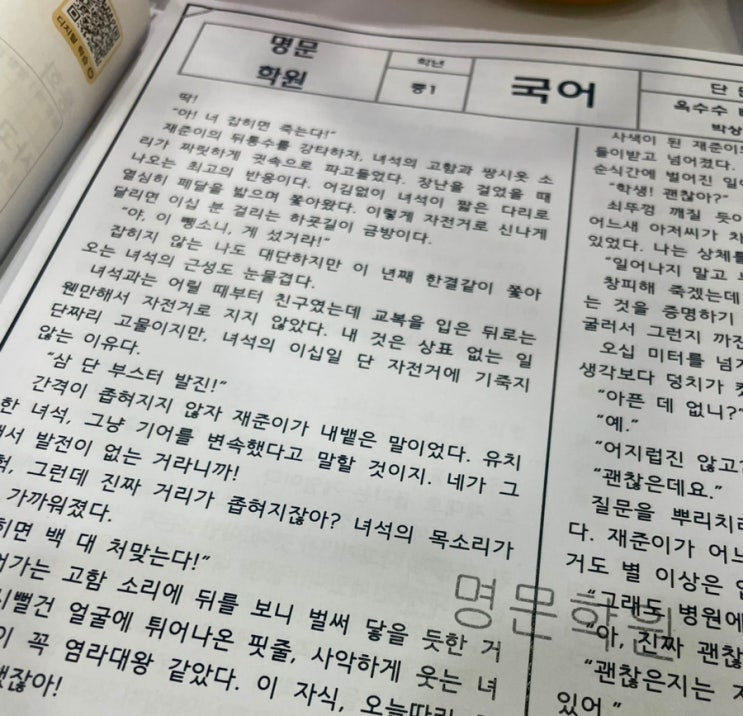 디지털 학습
명문
학원
학년
중1
국어
단원
옥수수
박상
딱!
"아! 너 잡히면 죽는다!"
재준이의 뒤통수를 강타하자, 녀석의 고함과 쌍시옷 소
리가 짜릿하게 귓속으로 파고들었다. 장난을 걸었을 때
나오는 최고의 반응이다. 어김없이 녀석이 짧은 다리로
열심히 페달을 밟으며 쫓아왔다. 이렇게 자전거로 신나게
달리면 이십 분 걸리는 하굣길이 금방이다.
"야, 이 뺑소니, 게 섰거라!"
잡히지 않는 나도 대단하지만 이 년째 한결같이 쫓아
오는 녀석의 근성도 눈물겹다.
녀석과는 어릴 때부터 친구였는데 교복을 입은 뒤로는
웬만해서 자전거로 지지 않았다. 내 것은 상표 없는 일
단짜리 고물이지만, 녀석의 이십일 단 자전거에 기죽지
않는 이유다.
"삼 단 부스터 발진!"
간격이 좁혀지지 않자 재준이가 내뱉은 말이었다. 유치
한 녀석, 그냥 기어를 변속했다고 말할 것이지. 네가 그
서 발전이 없는 거라니까!
그런데 진짜 거리가 좁혀지잖아? 녀석의 목소리가
가까워졌다.
히면 백 대 처맞는다!"
어가는 고함 소리에 뒤를 보니 벌써 닿을 듯한 거
시뻘건 얼굴에 튀어나온 핏줄, 사악하게 웃는 녀
이 꼭 염라대왕 같았다. 이 자식, 오늘따라
잖아!
사색이 된 재준이
들이받고 넘어졌다.
순식간에 벌어진 일
"학생! 괜찮아?"
쇠뚜껑 깨질 듯이
어느새 아저씨가 차
있었다. 나는 상체를
"일어나지 말고
창피해 죽겠는데
는 것을 증명하기
굴러서 그런지 까진
오십 미터를 넘기
생각보다 덩치가 컷
"아픈 데 없니?"
"예."
"어지럽진 않고?
"괜찮은데요."
질문을 뿌리치려
다. 재준이가 어느
거도 별 이상은 없
"그래도 병원에
"아, 진짜 괜찮
"괜찮은지는
있어."
명문학원